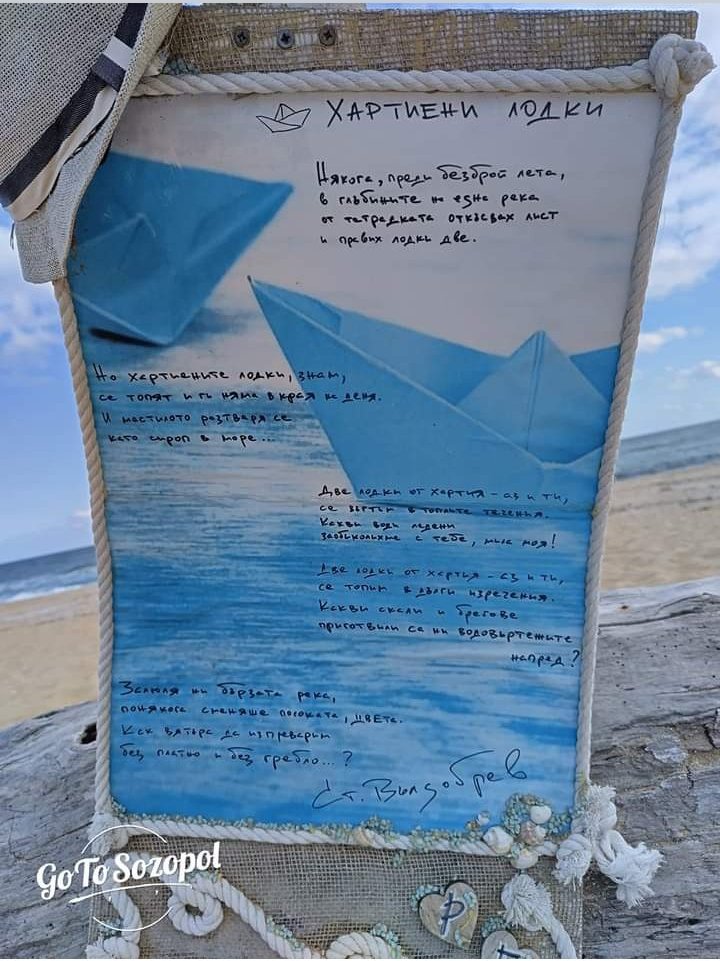 ХАРТИЕНИ ЛОДКИ
Някога, преди безброй лета,
в глъбините на една река
от тетрадката откъсвах лист
и правих лодки две.
Но хартиените лодки, знам,
се топят и ги няма в края на деня.
И мастилото разтваря се
като сироп в море...
Две лодки от хартия - аз и ти,
се въртим в топлите течения.
Какви води ледени
заобиколихме с тебе, мила моя!
Две лодки от хартия - аз и ти,
се топим в дълги изречения.
Какви скали и брегове
приготвили са ни водовъртежите
напред?
Залюля ни бързата река,
понякога сменяше посоката, цвета.
Как вятъра да изпреварим
без платно и без гребло...?
Ст. Вълдобрев
GoTo Sozopol
Р